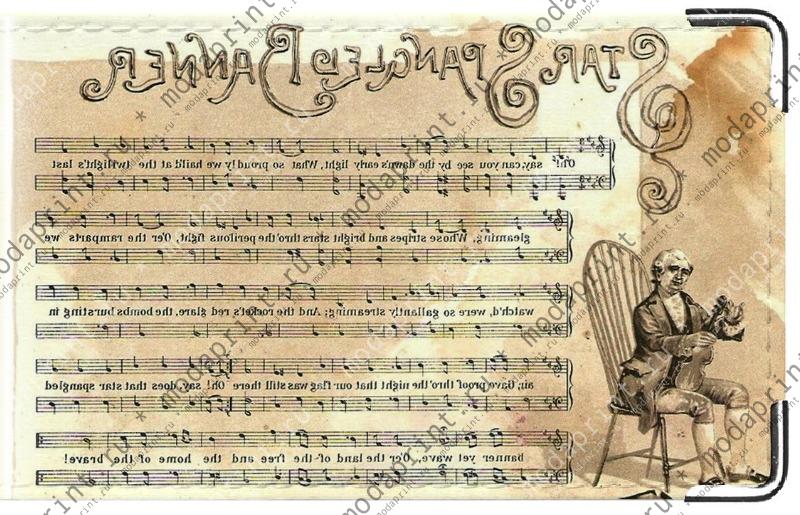 Star Spangled Banner
Oh! say, can you see by the dawn's early light, What so proudly we haild at the twilight's last
gleaming, Whose stripes and bright stars thro' the perilous fight, O'er the ramparts we
watch'd, were so gallantly streaming; And the rocket's red glare, the bombs bursting in
air, Gave proof thro' the night that our flag was still there Oh! say, does that star spangled
banner yet wave, O'er the land of the free and the home of the brave!
modaprint.ru